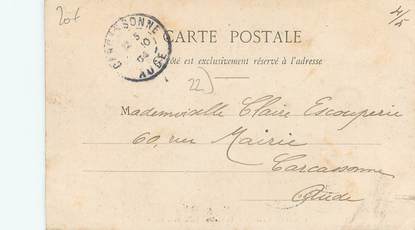 20f
4/5
CARCASSONNE
5
10
04
AUDE
CARTE POSTALE
côté est exclusivement réservé à l'adresse
22)
Mademoiselle Claire Escouperie
60, rue Mairie
Carcassonne
Aude